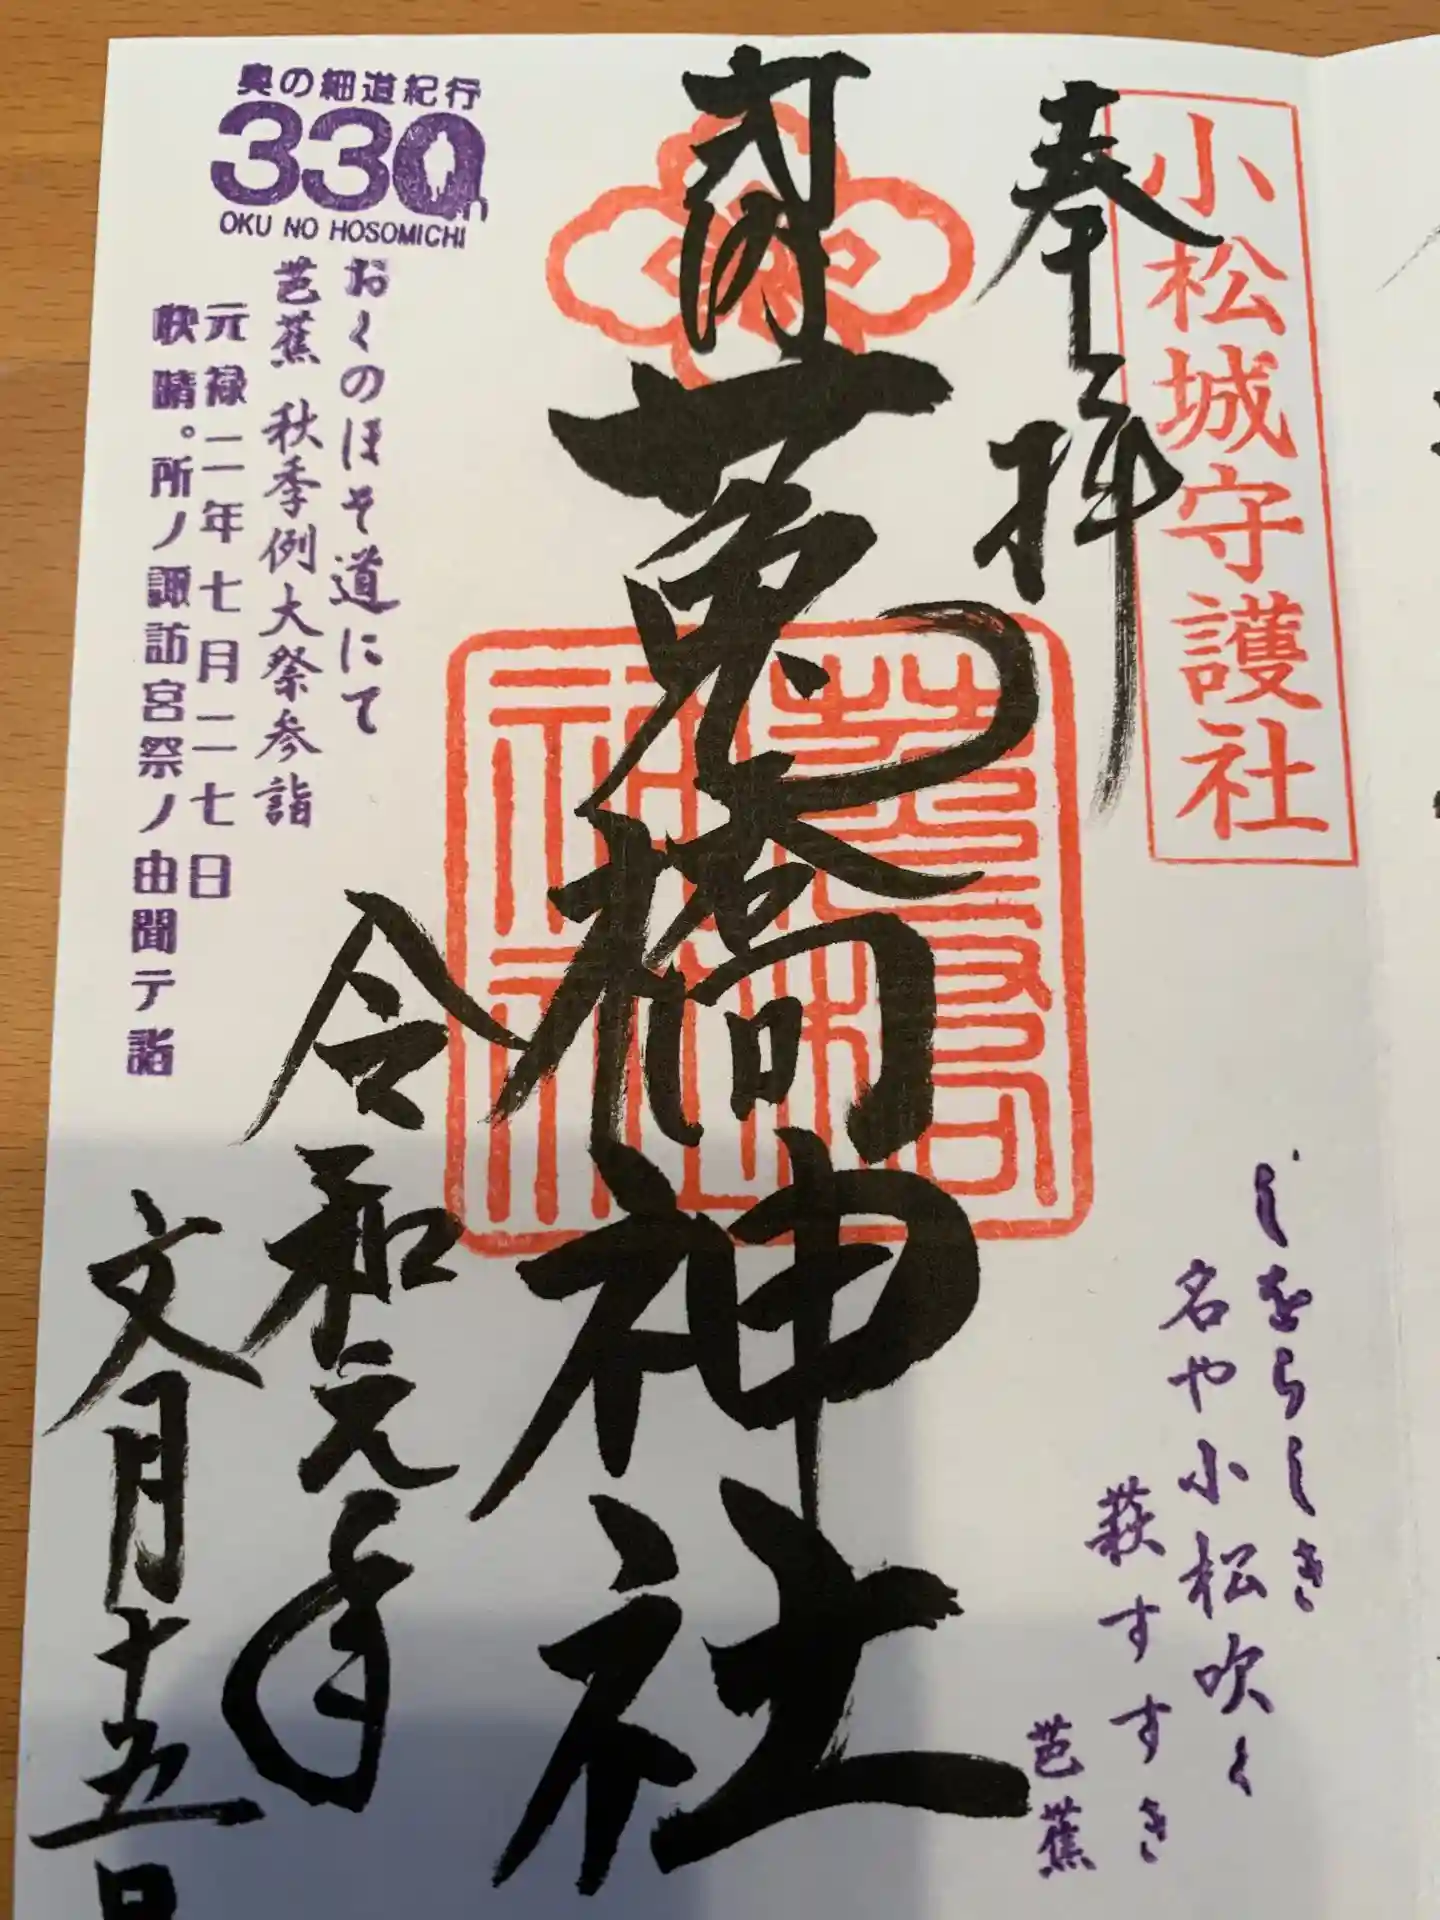 小松城守護社
奉拝
しをらしき
名や小松吹く
萩すすき
芭蕉
莵橋神社
奥の細道紀行
330th
OKU NO HOSOMICHI
おくのほそ道にて
芭蕉 秋季例大祭参詣
元禄二年七月二七日
快晴。所ノ諏訪宮祭ノ由聞テ詣
令和元年
文月十五日